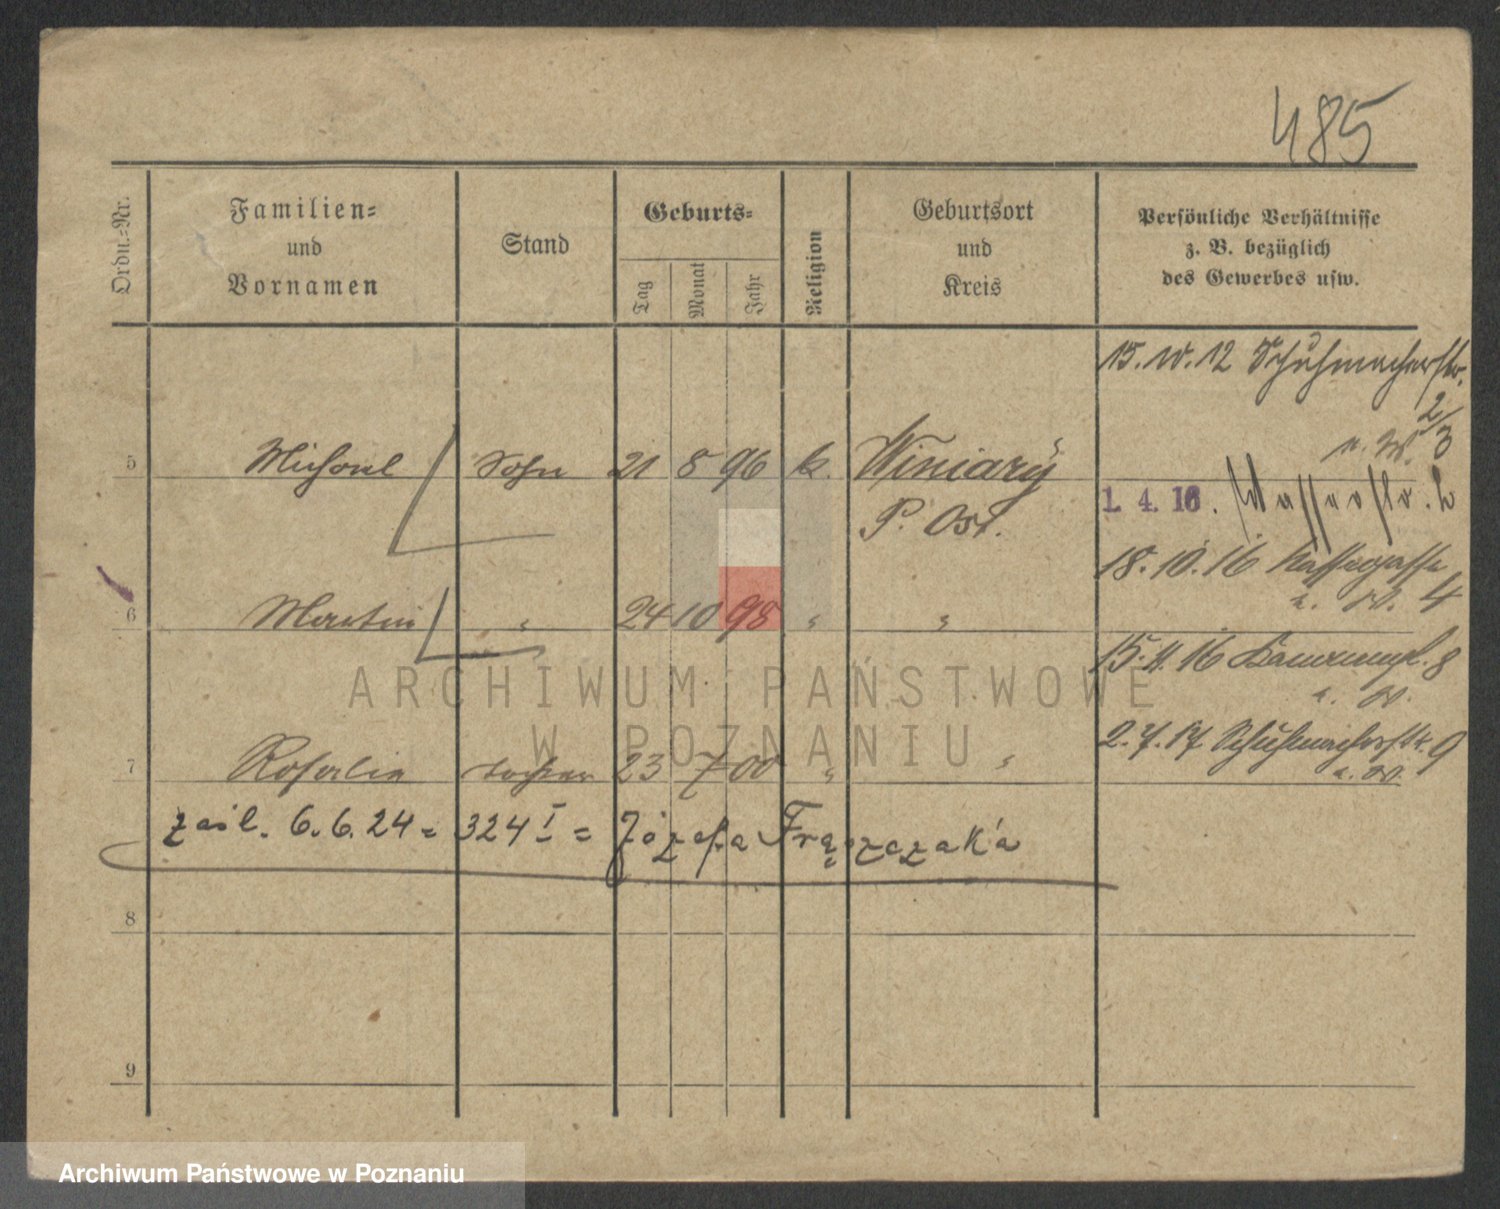 485
Ordn.-Nr.
Familien-
und
Vornamen
Stand
Geburts-
Tag
Monat
Jahr
Religion
Geburtsort
und
Kreis
Persönliche Verhältnisse
z. B. bezüglich
des Gewerbes usw.
15. IV. 12 Schuhmacherstr.
2/3
u. W.
5 Michael Sohn 21 8 96 k. Winiary
P. Ost.
1. 4. 16. Wasserstr. 2
18. 10. 16 4
u. W.
6 Martin " 24 10 98 " "
15. 11. 16 8
u. W.
2. 7. 17 Schuhmacherstr. 9
u. W.
7 Rosalie Tochter 23 7 00 " "
zaśl. 6.6.24 = 324 I = Józefa Frąszczaka
8
9
ARCHIWUM PAŃSTWOWE
W POZNANIU
Archiwum Państwowe w Poznaniu